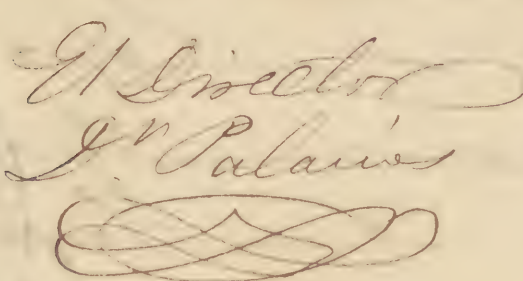 El Director
Jn Palacios